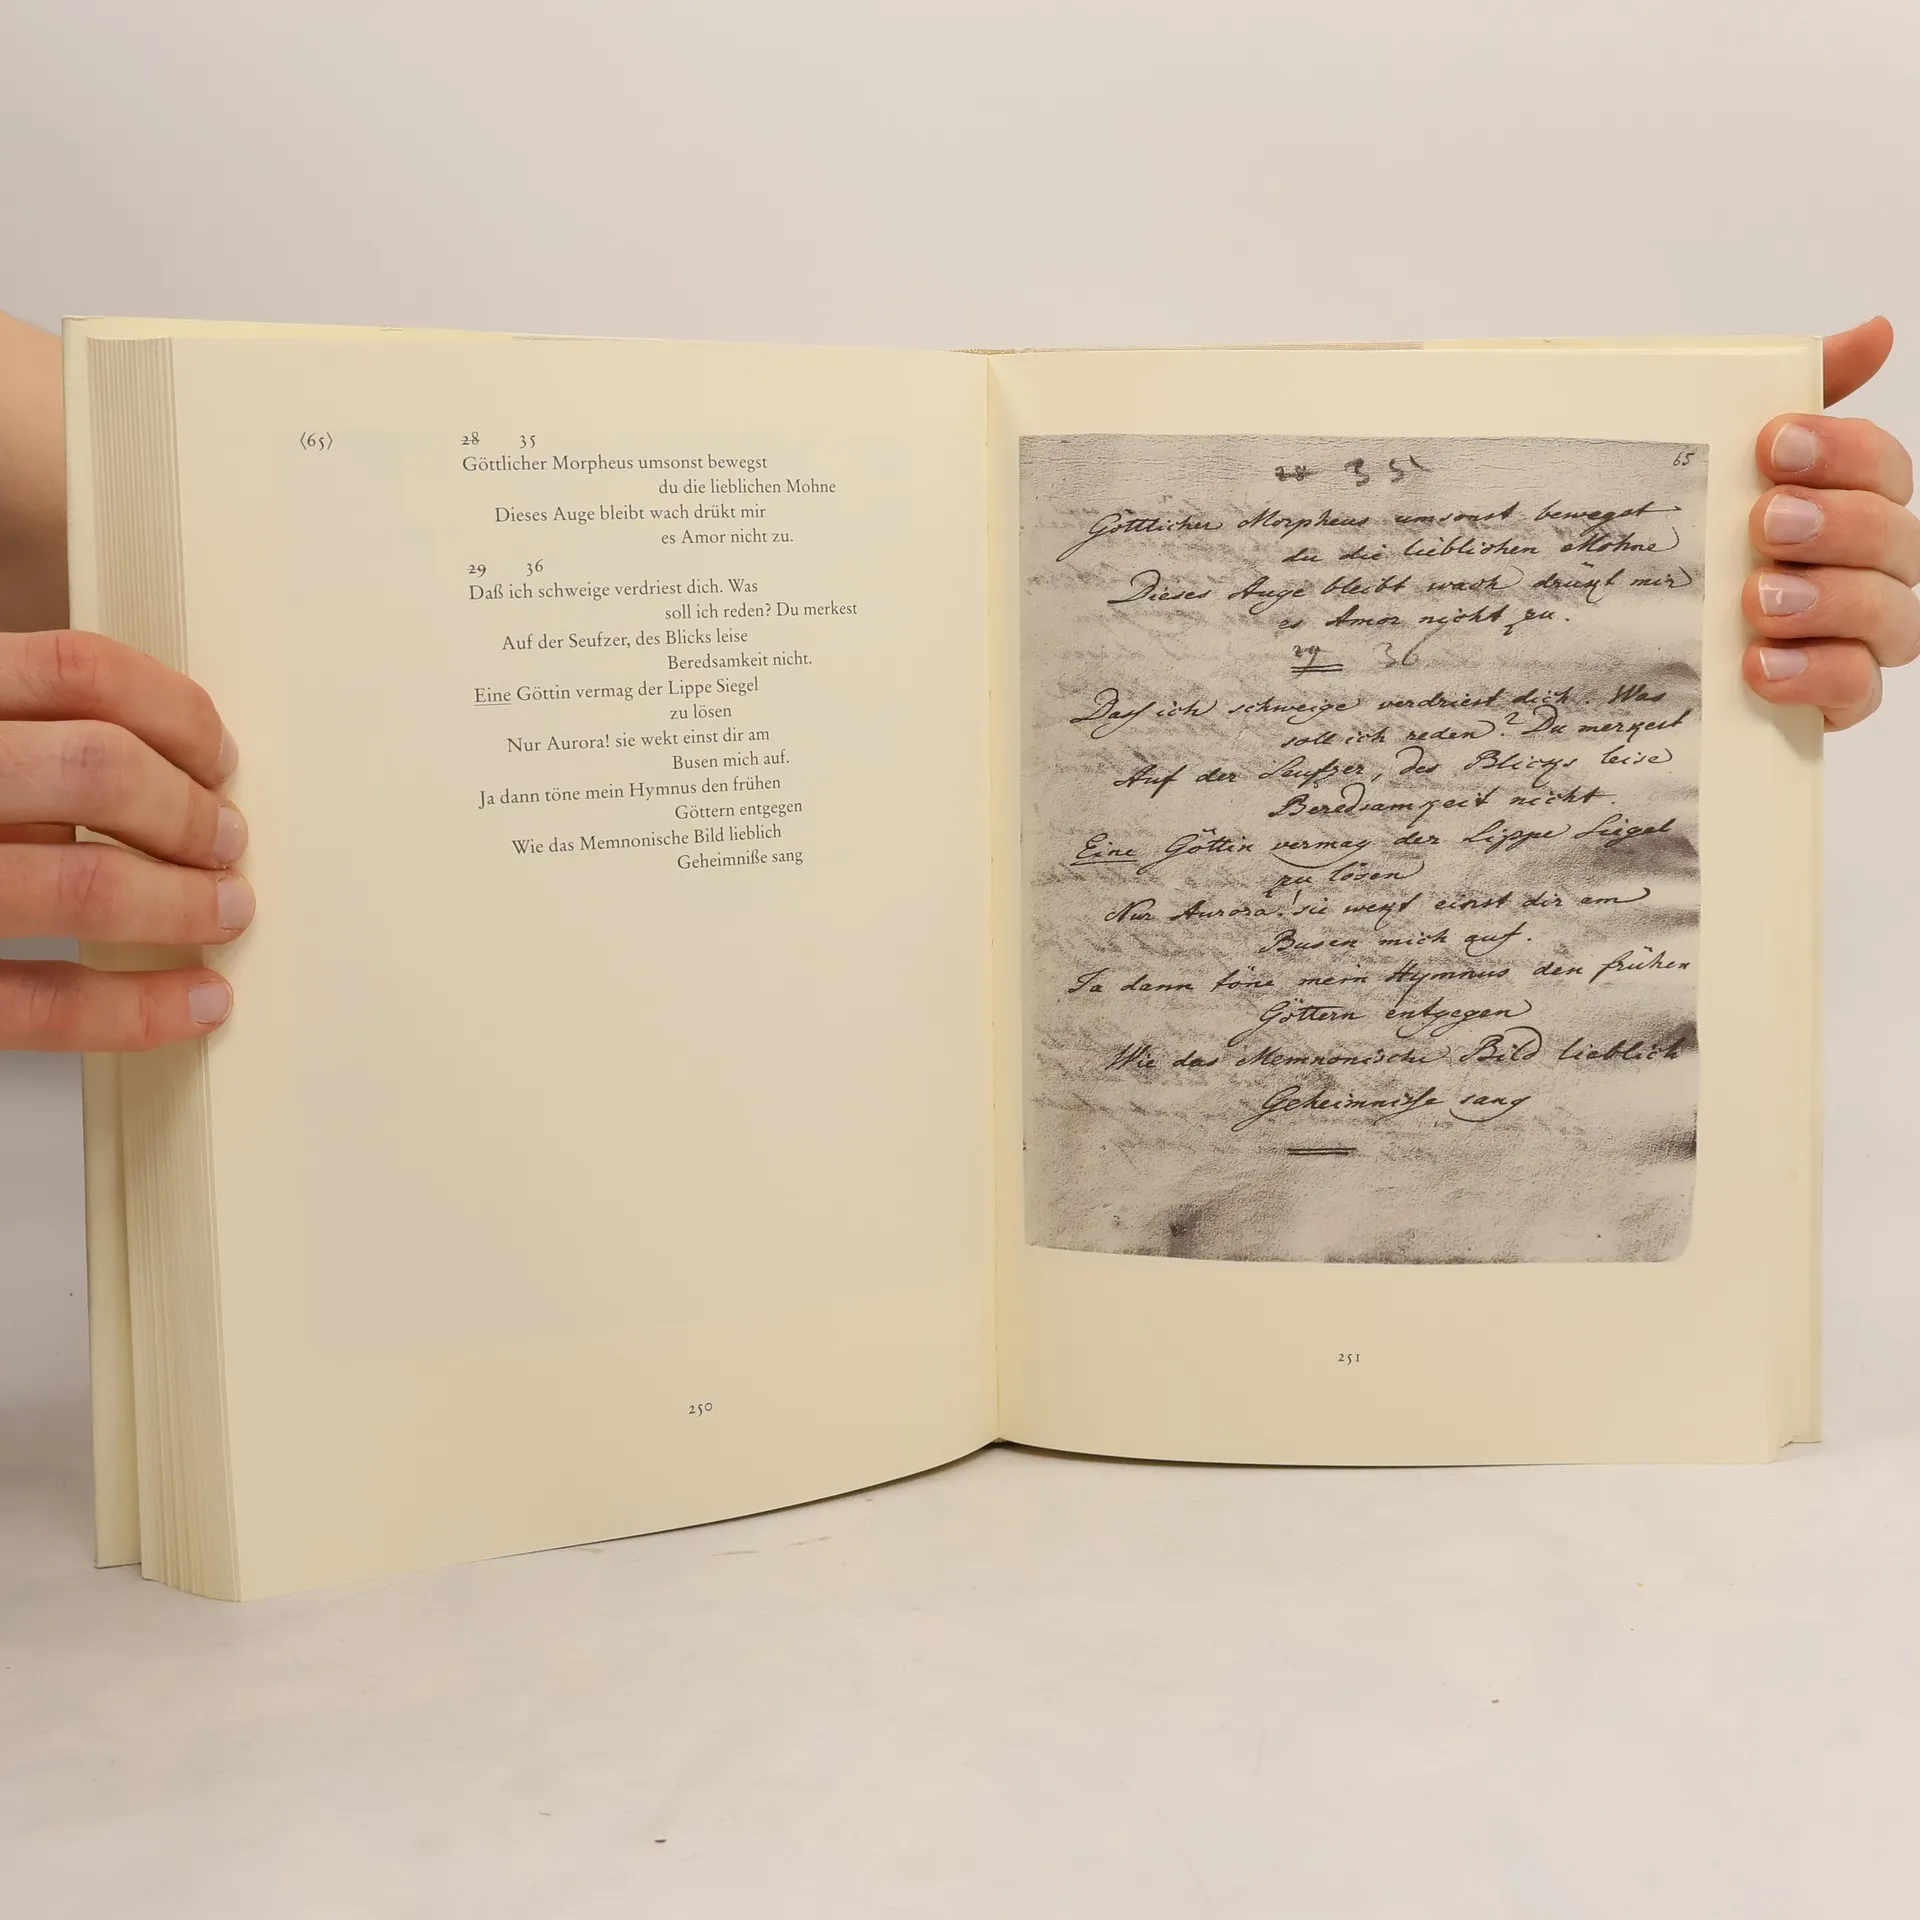 〈65〉
28 35
Göttlicher Morpheus umsonst bewegst
du die lieblichen Mohne
Dieses Auge bleibt wach drükt mir
es Amor nicht zu.
29 36
Daß ich schweige verdriest dich. Was
soll ich reden? Du merkest
Auf der Seufzer, des Blicks leise
Beredsamkeit nicht.
Eine Göttin vermag der Lippe Siegel
zu lösen
Nur Aurora! sie wekt einst dir am
Busen mich auf.
Ja dann töne mein Hymnus den frühen
Göttern entgegen
Wie das Memnonische Bild lieblich
Geheimniße sang
250
65
28 35
Göttlicher Morpheus umsonst bewegst
du die lieblichen Mohne
Dieses Auge bleibt wach drükt mir
es Amor nicht zu.
29 36
Daß ich schweige verdriest dich. Was
soll ich reden? Du merkest
Auf der Seufzer, des Blicks leise
Beredsamkeit nicht.
Eine Göttin vermag der Lippe Siegel
zu lösen
Nur Aurora! sie wekt einst dir am
Busen mich auf.
Ja dann töne mein Hymnus den frühen
Göttern entgegen
Wie das Memnonische Bild lieblich
Geheimniße sang
251